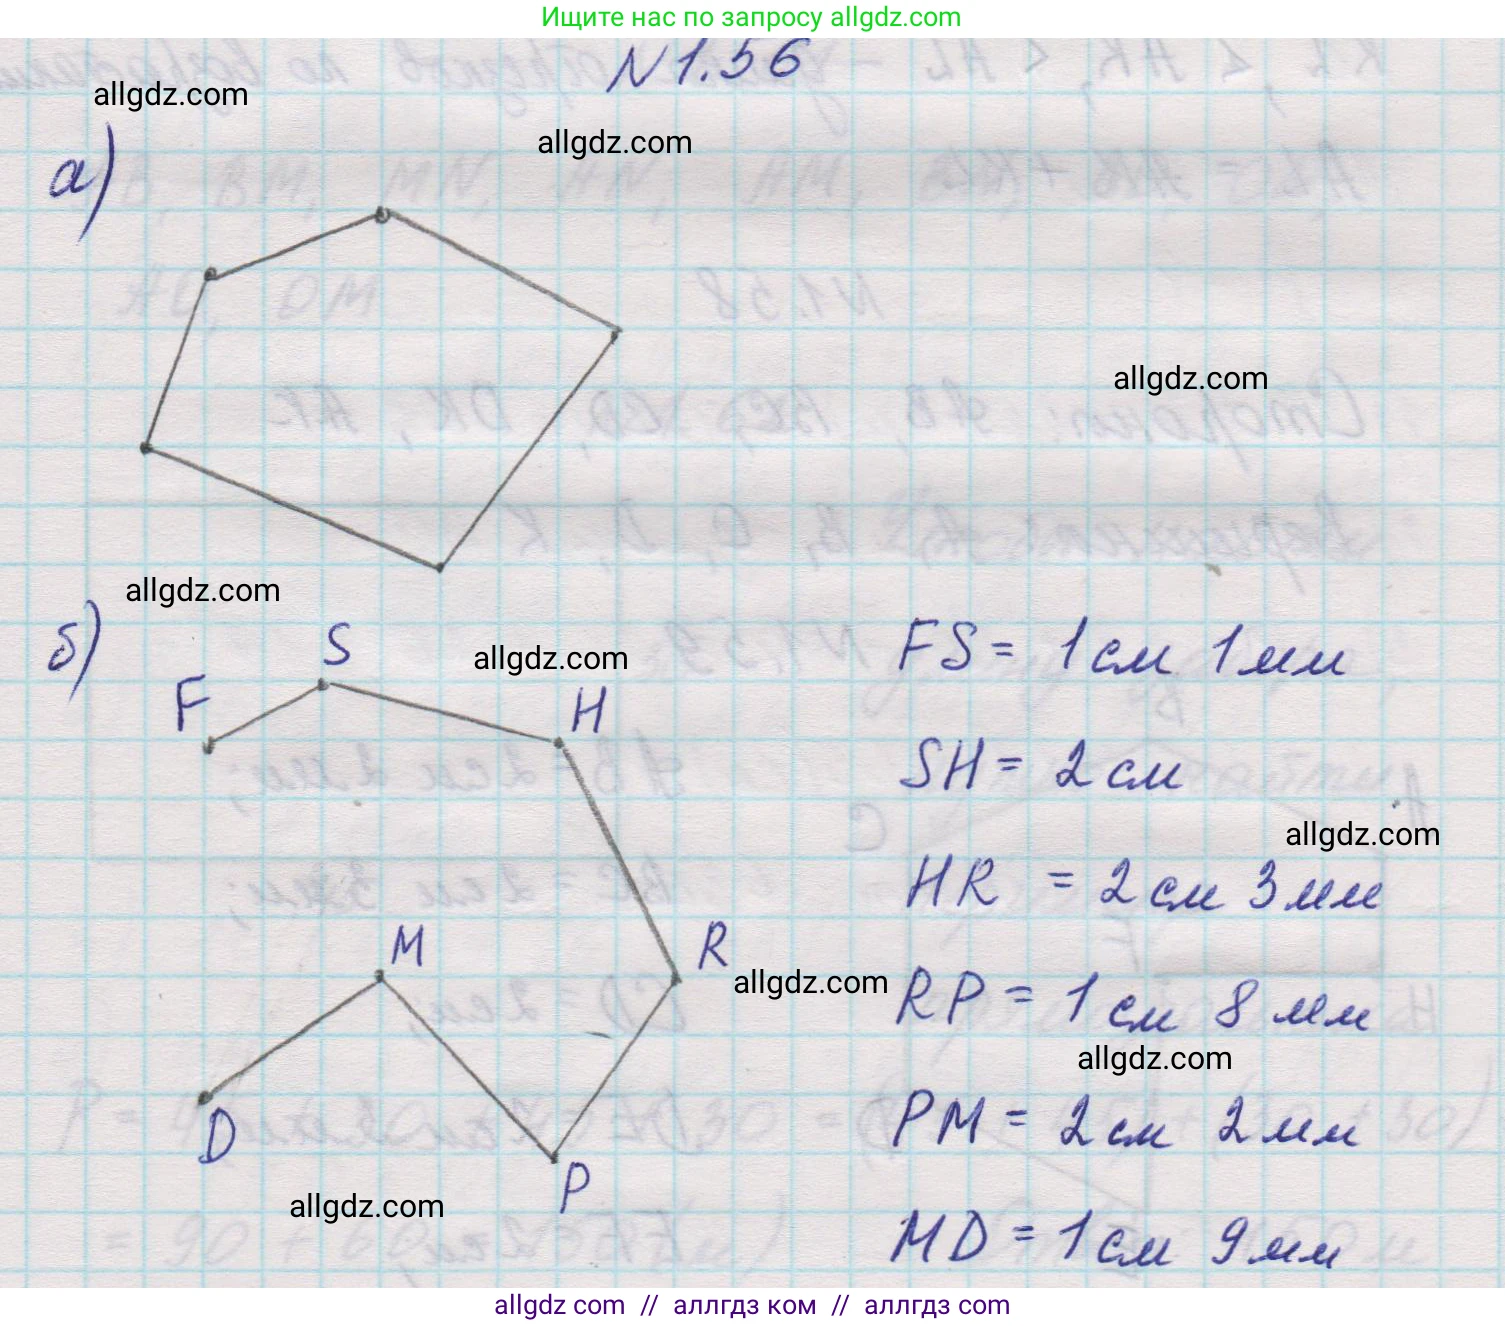 Ищите нас по запросу allgdz.com
N 1.56
allgdz.com
allgdz.com
а)
allgdz.com
allgdz.com
б)
S
allgdz.com
FS = 1 см 1 мм
F
H
SH = 2 см
allgdz.com
HR = 2 см 3 мм
M
R
allgdz.com
RP = 1 см 8 мм
allgdz.com
D
PM = 2 см 2 мм
P
allgdz.com
MD = 1 см 9 мм
allgdz com // аллгдз ком // аллгдз com